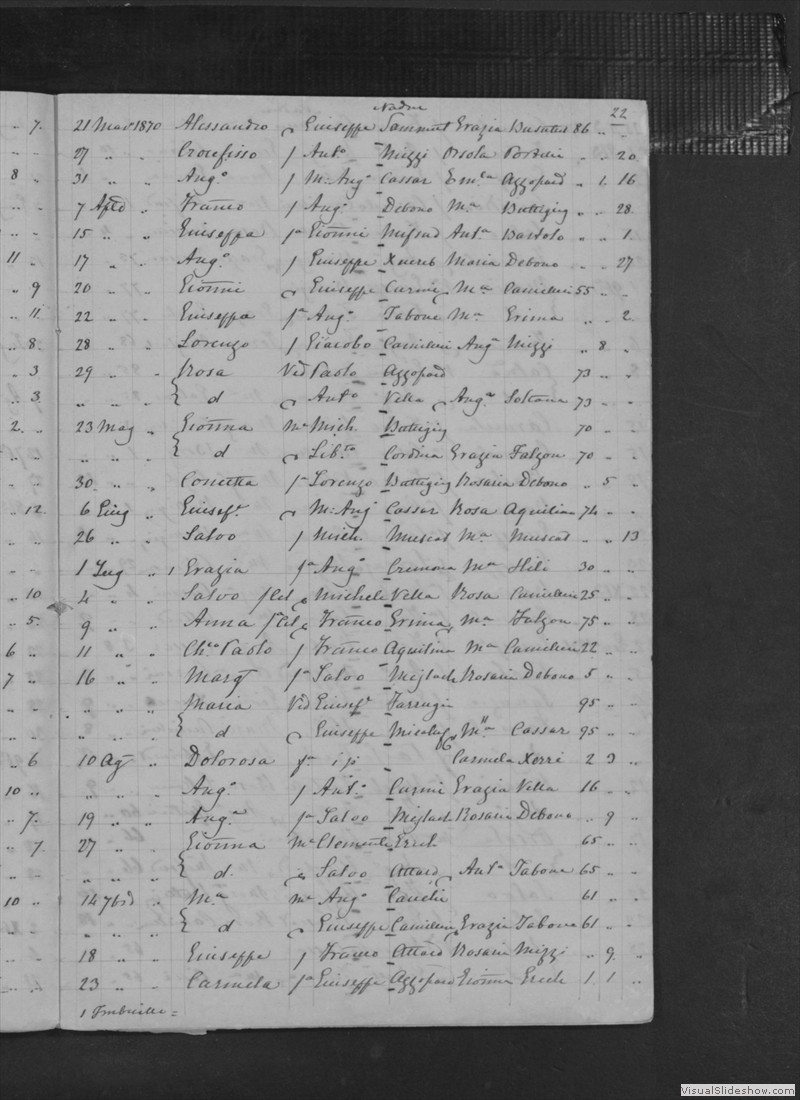 Nadur 22
.. 7. 21 Mar 1870 Alessandro Giuseppe Sammut Grazia 86 .. ..
27 .. .. Crocefisso f Antº Mizzi Orsola .. .. 20
8 .. 31 .. .. Angº f M: Angº Cassar Azzopard .. 1. 16
7 .. Franco f Angº Debono Mª Buttigieg .. .. 28
15 .. .. Giuseppa fª Gionni Mifsud Antª Bartolo .. .. 1
11 .. 17 .. .. Angº f Giuseppe Xuereb Maria Debono .. .. 27
.. 9 20 .. .. Gionni Giuseppe Curmi Mª Camilleri 55 .. ..
.. 11. 22 .. .. Giuseppa fª Angº Tabone Mª Grima .. .. 2.
.. 8. 28 .. .. Lorenzo f Giacobo Camilleri Angª Mizzi .. 8 ..
.. 3 29 .. .. Rosa Ved Paolo Azzopard 73 .. ..
.. 3. .. .. .. { d Antº Vella Angª Soltana 73 .. ..
2. .. 23 Mag .. Gionna Mª Mich. Buttigieg 70 .. ..
.. .. .. { d Libº Cordina Grazia Falzon 70 .. ..
30 .. .. Concetta fª Lorenzo Buttigieg Rosaria Debono .. 5 ..
.. 12. 6 Giug .. M: Angº Cassar Rosa Aquilina 74 .. ..
26 .. .. Salvo f Mich. Muscat Mª Muscat .. .. 13
1 Lug .. 1 Grazia fª Angº Cremona Mª Hili 30 .. ..
.. 10 4 .. .. Salvo Michele Vella Rosa Camilleri 25 .. ..
.. 5. 9 .. .. Anna Franco Grima Mª Falzon 75 .. ..
6 .. 11 .. .. Paolo f Franco Aquilina Mª Camilleri 22 .. ..
7 .. 16 .. .. Marg fª Salvo Mejlach Rosaria Debono 5 .. ..
.. .. .. Maria Ved Giusefe Farrugia 95 .. ..
.. .. .. { d Giuseppe Micallef Mª Cassar 95 .. ..
.. 6 10 Ag .. Dolorosa fª ip Carmela Xerri 2 3 ..
10 .. .. .. .. Angº f Antº Curmi Grazia Vella 16 .. ..
.. 7. 19 .. .. Angª fª Salvo Mejlach Rosaria Debono .. 9 ..
.. 7. 27 .. .. Gionna Mª Clemente Grech 65 .. ..
.. .. .. { d. Salvo Attard Antª Tabone 65 .. ..
10 .. 14 7bre .. Mª Mª Angº Cauchi 61 .. ..
.. .. .. { d Giuseppe Camilleri Grazia Tabone 61 .. ..
18 .. .. Giuseppe f Franco Attard Rosaria Mizzi .. 9 ..
23 .. .. Carmela fª Giuseppe Azzopard Gionna Grech 1 1 ..
VisualSlideshow.com